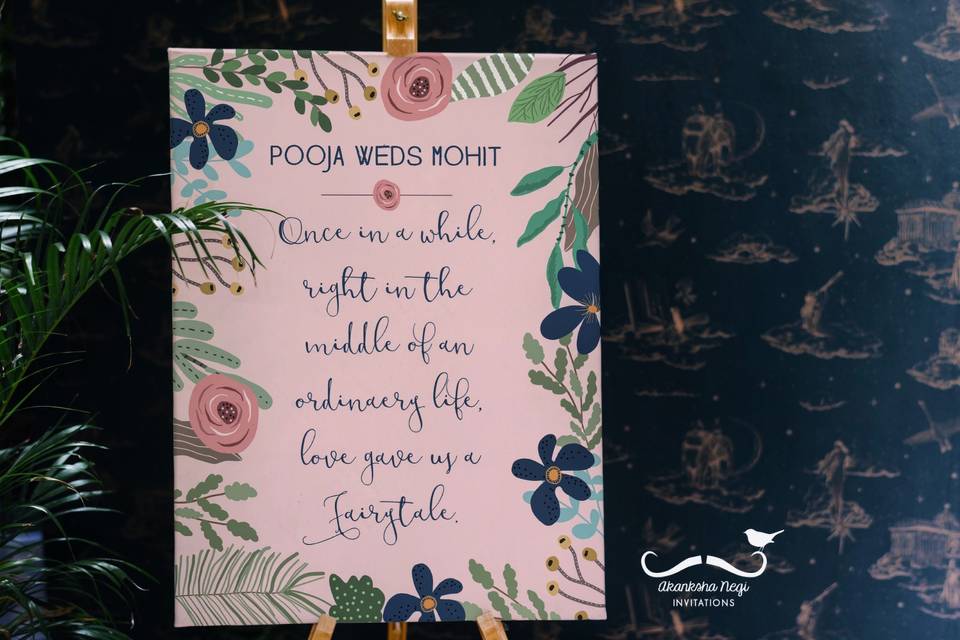 POOJA WEDS MOHIT
Once in a while,
right in the
middle of an
ordinaery life,
love gave us a
Fairytale.
Akanksha Negi
INVITATIONS